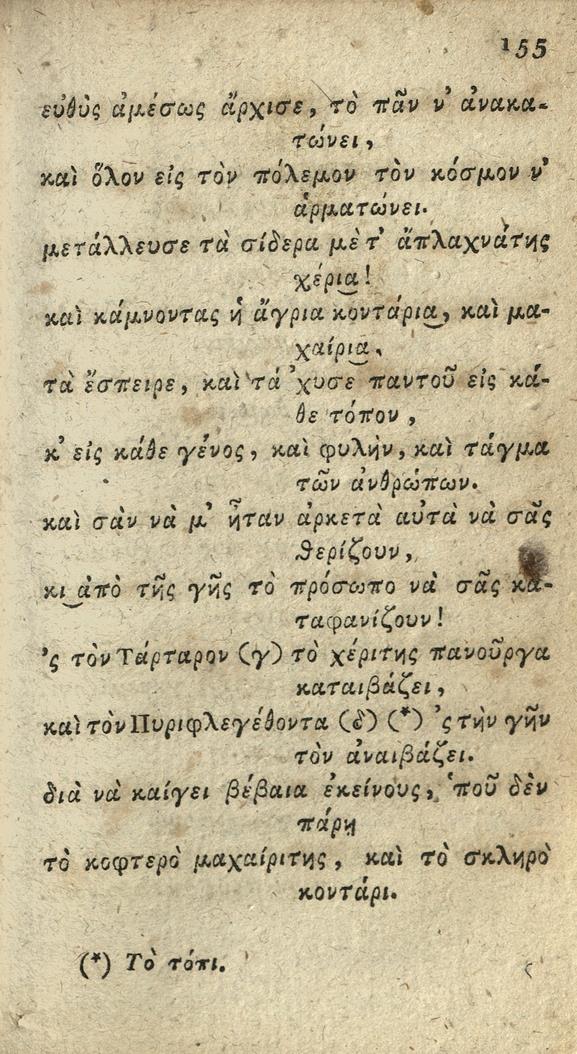 155
εὐθὺς ἀμέσως ἄρχισε, τὸ πᾶν ν' ἀνακα-
τώνει,
καὶ ὅλον εἰς τὸν πόλεμον τὸν κόσμον ν'
ἁρματώνει.
μετάλλευσε τὰ σίδερα μὲ τ' ἄπλαχνάτης
χέρι͜α!
καὶ κάμνοντας ἡ ἄγρια κοντάρι͜α, καὶ μα-
χαίρι͜α,
τὰ ἔσπειρε, καὶ τά 'χυσε παντοῦ εἰς κά-
θε τόπον,
κ' εἰς κάθε γένος, καὶ φυλὴν, καὶ τάγμα
τῶν ἀνθρώπων.
καὶ σὰν νὰ μ' ἦταν ἀρκετὰ αὐτὰ νὰ σᾶς
θερίζουν,
κι͜ ἀπὸ τῆς γῆς τὸ πρόσωπο νὰ σᾶς κα-
ταφανίζουν!
'ς τὸν Τάρταρον (γ) τὸ χέριτης πανοῦργα
καταιβάζει,
καὶ τὸν Πυριφλεγέθοντα (δ) (*) 'ς τὴν γῆν
τὸν ἀναιβάζει.
διὰ νὰ καίγει βέβαια ἐκείνους, 'ποῦ δὲν
πάρῃ
τὸ κοφτερὸ μαχαίριτης, καὶ τὸ σκληρὸ
κοντάρι.
(*) Τὸ τόπι.